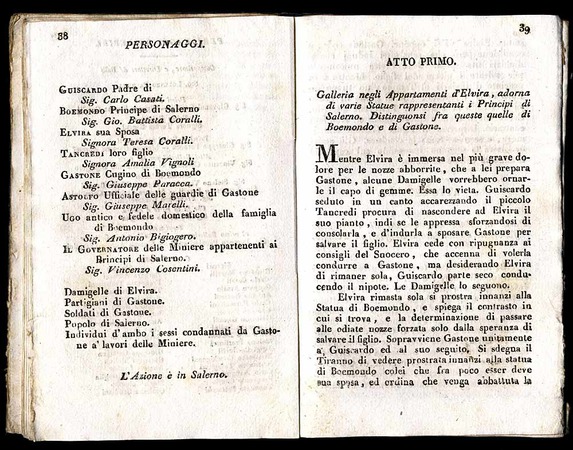 38
PERSONAGGI.
GUISCARDO Padre di
Sig. Carlo Casati.
BOEMONDO Principe di Salerno
Sig. Gio. Battista Coralli.
ELVIRA sua Sposa
Signora Teresa Coralli.
TANCREDI loro figlio
Signora Amalia Vignoli
GASTONE Cugino di Boemondo
Sig. Giuseppe Paracca.
ASTOLFO Ufficiale delle guardie di Gastone
Sig. Giuseppe Marelli.
UGO antico e fedele domestico della famiglia
di Boemondo
Sig. Antonio Bigiogero.
IL GOVERNATORE delle Miniere appartenenti ai
Principi di Salerno.
Sig. Vincenzo Cosentini.
Damigelle di Elvira.
Partigiani di Gastone.
Soldati di Gastone.
Popolo di Salerno.
Individui d'ambo i sessi condannati da Gasto-
ne a' lavori delle Miniere.
L'Azione è in Salerno.
39
ATTO PRIMO.
Galleria negli Appartamenti d'Elvira, adorna
di varie Statue rappresentanti i Principi di
Salerno. Distinguonsi fra queste quelle di
Boemondo e di Gastone.
Mentre Elvira è immersa nel più grave do-
lore per le nozze abborrite, che a lei prepara
Gastone, alcune Damigelle vorrebbero ornar-
le il capo di gemme. Essa lo vieta. Guiscardo
seduto in un canto accarezzando il piccolo
Tancredi procura di nascondere ad Elvira il
suo pianto, indi se le appressa sforzandosi di
consolarla, e d'indurla a sposare Gastone per
salvare il figlio. Elvira cede con ripugnanza ai
consigli del Suocero, che accenna di volerla
condurre a Gastone, ma desiderando Elvira
di rimaner sola, Guiscardo parte seco condu-
cendo il nipote. Le Damigelle lo seguono.
Elvira rimasta sola si prostra innanzi alla
Statua di Boemondo, e spiega il contrasto in
cui si trova, e la determinazione di passare
alle odiate nozze forzata solo dalla speranza di
salvare il figlio. Sopravviene Gastone unitamente
a Guiscardo ed al suo seguito. Si sdegna il
Tiranno di vedere prostrata innanzi alla statua
di Boemondo colei che fra poco esser deve
sua sposa, ed ordina che venga abbattuta la